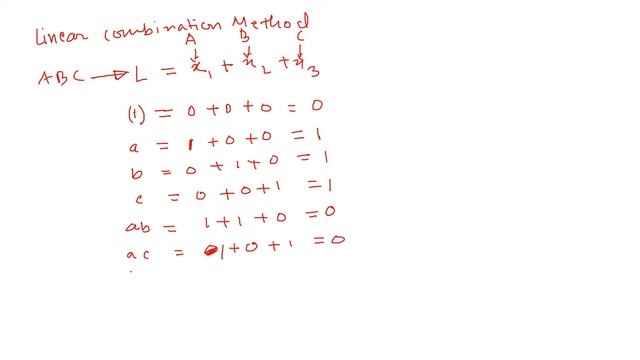 Linear combination Method
A B C
ABC → L = x₁ + x₂ + x₃
(1) = 0 + 0 + 0 = 0
a = 1 + 0 + 0 = 1
b = 0 + 1 + 0 = 1
c = 0 + 0 + 1 = 1
ab = 1 + 1 + 0 = 0
ac = 1 + 0 + 1 = 0